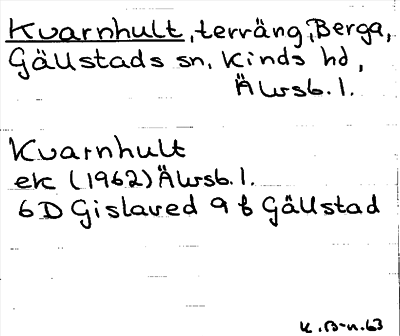 Kvarnhult, terräng, Berga,
Gällstads sn, Kinds hd,
Älvsb. l.
Kvarnhult
ek (1962) Älvsb. l.
6D Gislaved 9 f Gällstad
K. B-n. 63